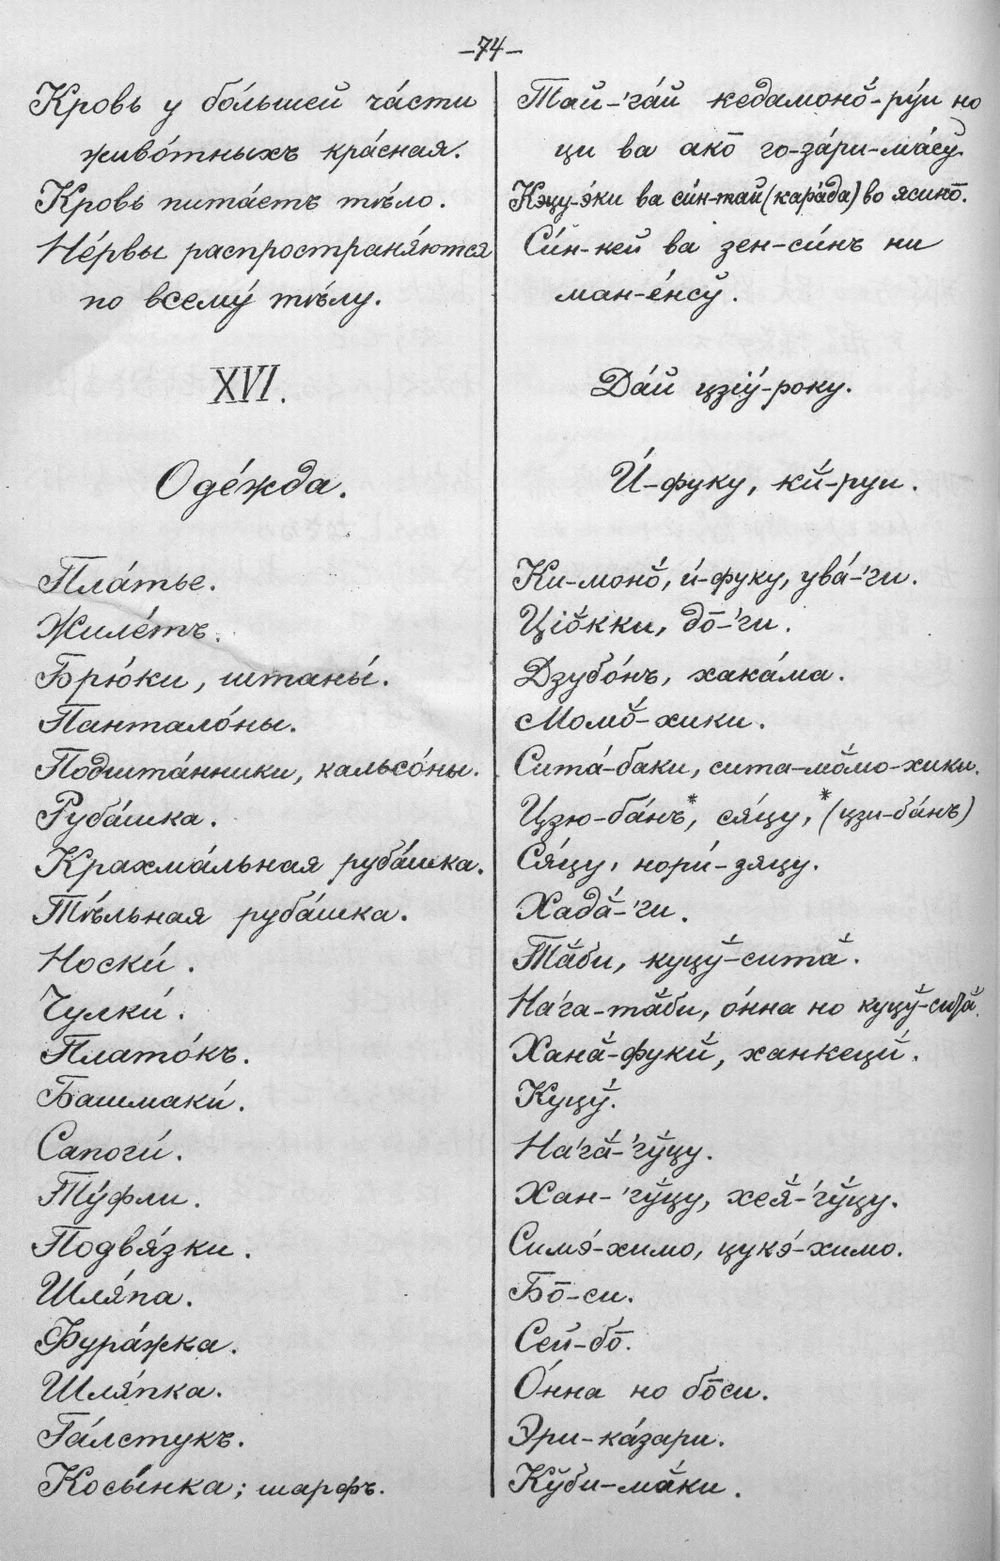 –74–
Кровь у бо́льшей ча́сти
живо́тныхъ кра́сная.
Кровь пита́етъ тѣ́ло.
Не́рвы распространя́ются
по всему́ тѣ́лу.
XVI.
Оде́жда.
Пла́тье.
Жиле́тъ.
Брю́ки, штаны́.
Пантало́ны.
Подшта́нники, кальсо́ны.
Руба́шка.
Крахма́льная руба́шка.
Тѣ́льная руба́шка.
Носки́.
Чулки́.
Плато́къ.
Башмаки́.
Сапоги́.
Ту́фли.
Подвя́зки.
Шля́па.
Фура́жка.
Шля́пка.
Га́лстукъ.
Косы́нка; шарфъ.
Тай-'га́й кедамоно̆́-ру́и но
ци ва ако̄ го-за́ри-ма́сӯ
Кэцу-э́ки ва си́н-тай (кара́да) во ясино̄.
Си́н-кей ва зен-си́нъ ни
ман-е́нсӯ.
Да́й цзіу́-року.
И́-фуку, кй́-руи.
Ки-моно̆́, и́-фуку, ува́-'ги.
Ціо̆́кки, до̄-'ги.
Дзубо́нъ, хака́ма.
Момо̆́-хики.
Сита́-баки, сита-мо̆́мо-хики.
Цзю-ба́нъ*, ся́цу,* (цзи-ба́нъ)
Ся́цу, нори́-зяцу.
Хадӑ́-'ги.
Тӑ́би, куцў́-ситӑ́.
На'га-тӑ́би, о́нна но куцў́-ситӑ́.
Ханӑ́-фукй́, ханкецй́.
Куцў́.
На'гӑ́-'гў́цу.
Хан-'гў́цу, хея̆́-'гў́цу.
Симэ́-химо, цукэ́-химо.
Бо̄-си.
Сей-бо̄.
О́нна но бо̄си.
Эри-ка́зари.
Кў́би-мӑ́ки.